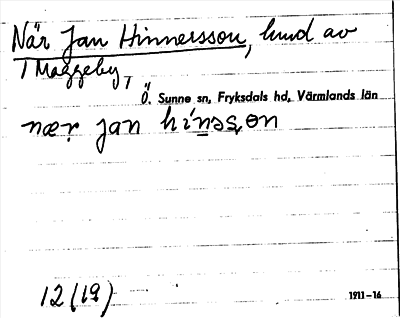 När Jan Hinnersson, hund av
i Maggeby,
Ö. Sunne sn, Fryksdals hd, Värmlands län
nær jan hínəsən
12 (19) 1911-16